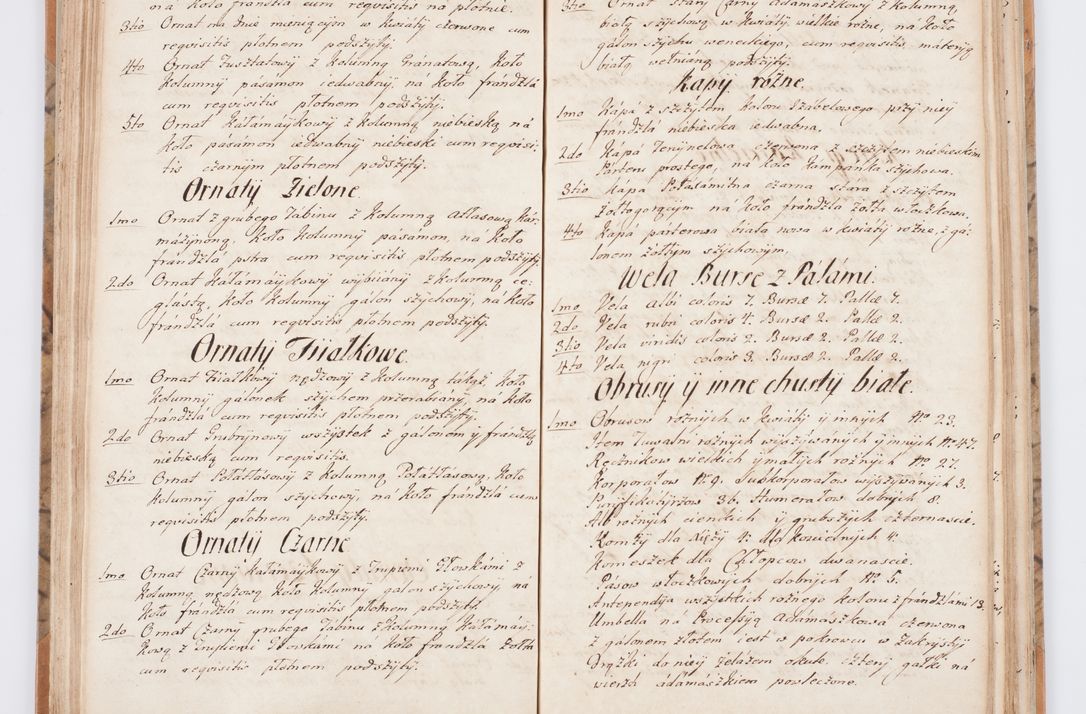 na koło frandzla cum requisitis na płotnie.
3tio Ornat na dnie mieniącym w kwiaty czerwone cum
requisitis płotnem podszyty.
4to Ornat Tusztatowy z Kolumną Granatową, Koło
Kolumny pasamon iedwabny, ná Koło frandzlá
cum requisitis płotnem podszyty.
5to Ornat Kátámáykowy z Kolumną niebieską ná
Koło pasamon iedwabny niebieski cum requisi-
tis czarnym płotnem podszyty.
Ornaty Zielone
1mo Ornat z grubego Tabinu z Kolumną Atłasową Kár-
mázynoną, Koło Kolumny pásamon, ná Koło
frándzlá pstra cum requisitis płotnem podszyty.
2do Ornat Kátámáykowy wybiiány z Kolumną ce-
glastą, Koło Kolumny galon szychowy, ná Koło
frándzlá cum requisitis płotnem podszyty.
Ornaty Fiiałkowe.
1mo Ornat Fiiałkowy nędzowy z Kolumną tákąż, Koło
Kolumny galonek szychem przerabiany, ná Koło
frándzlá cum requisitis płotnem podszyty.
2do Ornat Grubrynowy wszystek z gálonem y frándzlą
niebieską cum requisitis.
3tio Ornat Półátłasowy z Kolumną Półátłasową, Koło
Kolumny gálon szychowy, ná Koło frándzlá cum
requisitis płotnem podszyty.
Ornaty Czarne
1mo Ornat Czarny Kátámáykowy z Trupiemi Głowkámi z
Kolumną nędzową Koło Kolumny galon szychowy ná
Koło frándzlá cum requisitis płotnem podszyty.
2do Ornat Czarny grubego Tabinu z Kolumną Kátámái-
kową z Trupiemi Głowkami ná Koło frándzlá żołta
cum requisitis płotnem podszyty.
3tio Ornat stary Czarny Adamaszkowy z Kolumną,
biały szychową w Kwiaty wielkie rożne, ná Koło
gálon szychu weneckiego, cum requisitis, materyą
białą wełnianą podszyty.
Kapy rożne.
1mo Kápá z szczytem koloru Izabelowego przy niey
frándzlá niebieska iedwabna.
2do Kápá czerwona z szczytem niebieskim
Parteru prostego, na koło Kampanka szychowa.
3tio Kápa Półaxámitna czarna stara z szczytem
żołtogorącym ná koło frándzla żołta włoczkowa.
4to Kápá parterowa biała nowa w kwiaty rożne, z gá-
lonem żołtym szychowym.
Wela Bursę z Pálámi.
1mo Vela albi coloris 7. Bursæ 7. Pallæ 7.
2do Vela rubri coloris 4. Bursæ 2. Pallæ 2.
3tio Vela viridis coloris 2. Bursæ 2. Pallæ 2.
4to Vela nigri coloris 3. Bursæ 2. Pallæ 2.
Obrusy ÿ inne chusty białe.
1mo Obrusow rożnych w Kwiaty ÿ innych Nro 23.
Item Tuwalni rożnych wyszywánych ÿ innych Nro 47.
Ręcznikow wielkich ÿ małych rożnych Nro 27.
Korporałow Nro 9. Suskorporałow wyszywanych 3.
Puryfikátyrzow 36. Humerałow dobnych 8.
Alb rożnych cienkich ÿ grubszych czternascie.
Komży dla Xięży 4. dla kościelnych 4.
Komeszek dla Chłopcow dwanascie.
Pásow włoczkowych dobnych Nro 5.
Antependya wszystkich rożnego koloru z frandzlámi 13.
Umbella na Processyą Adámászkowa czerwona
z gálonem złotem iest w pokrowcu w Zakrystyi
Drążki do niey żelázem okute, cztery gałki ná
wierzch ádámászkiem powleczone.